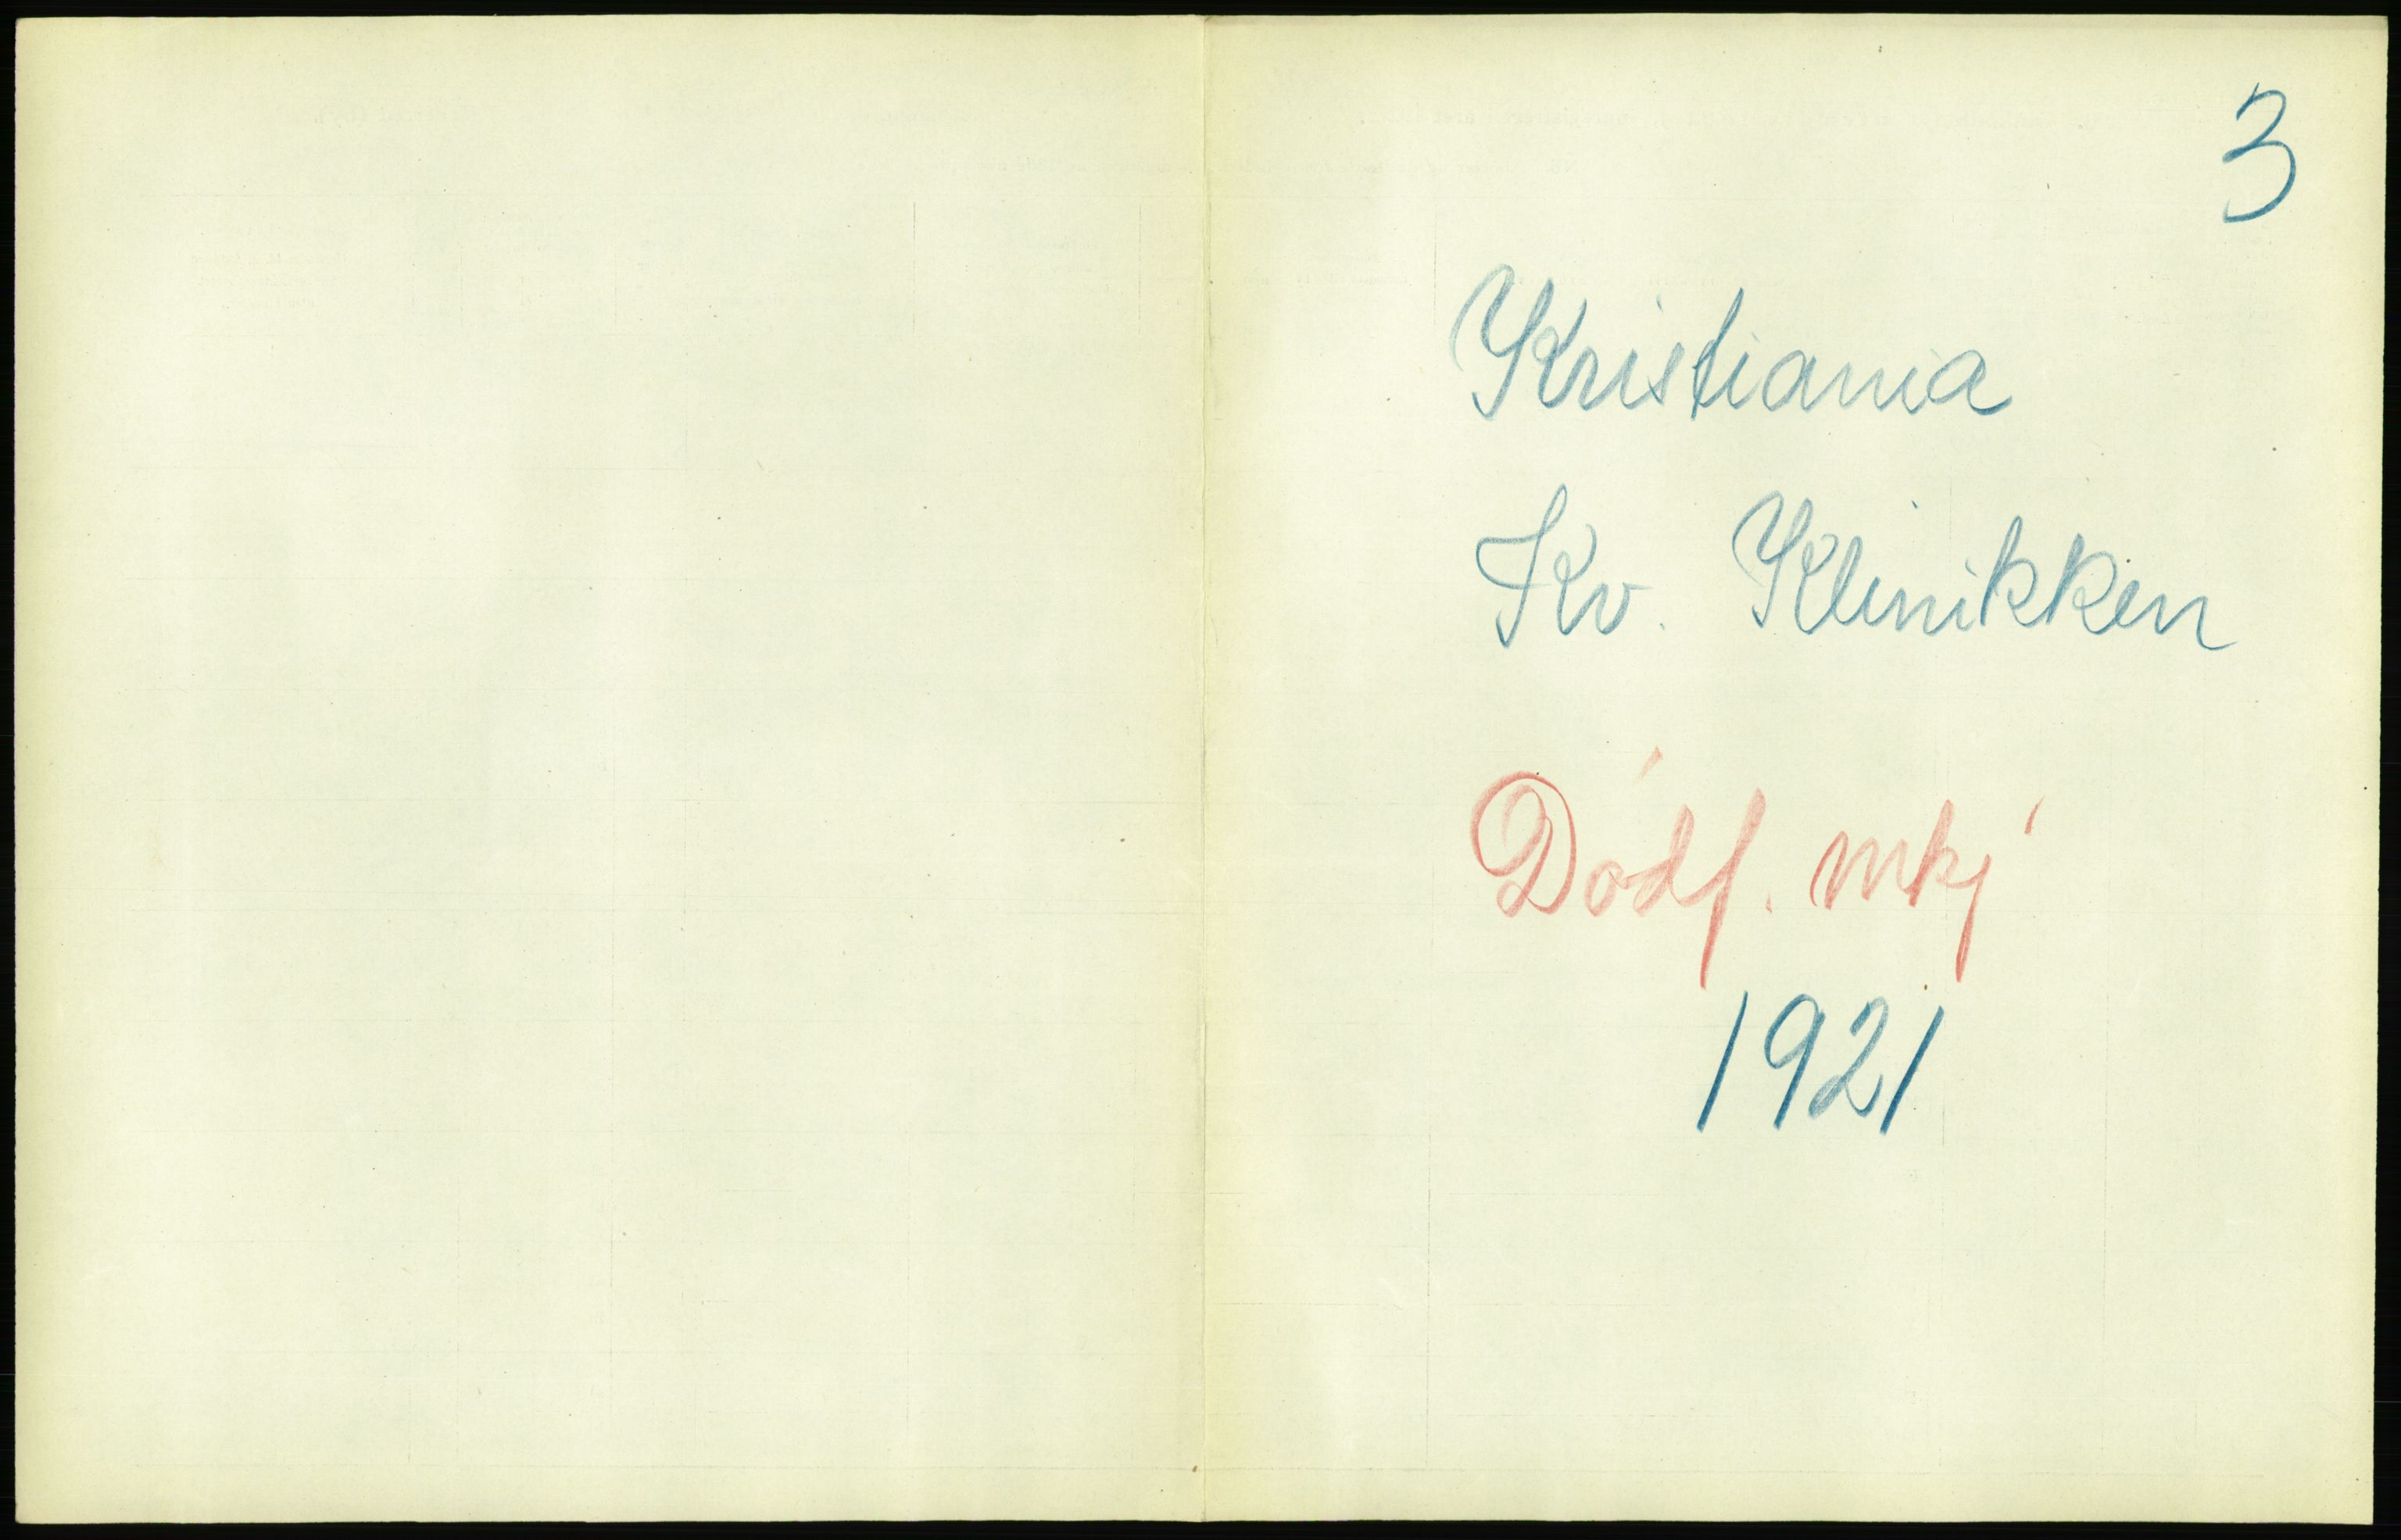 3
Kristiania
Kv. Klinikken
Dødf. mkj
1921